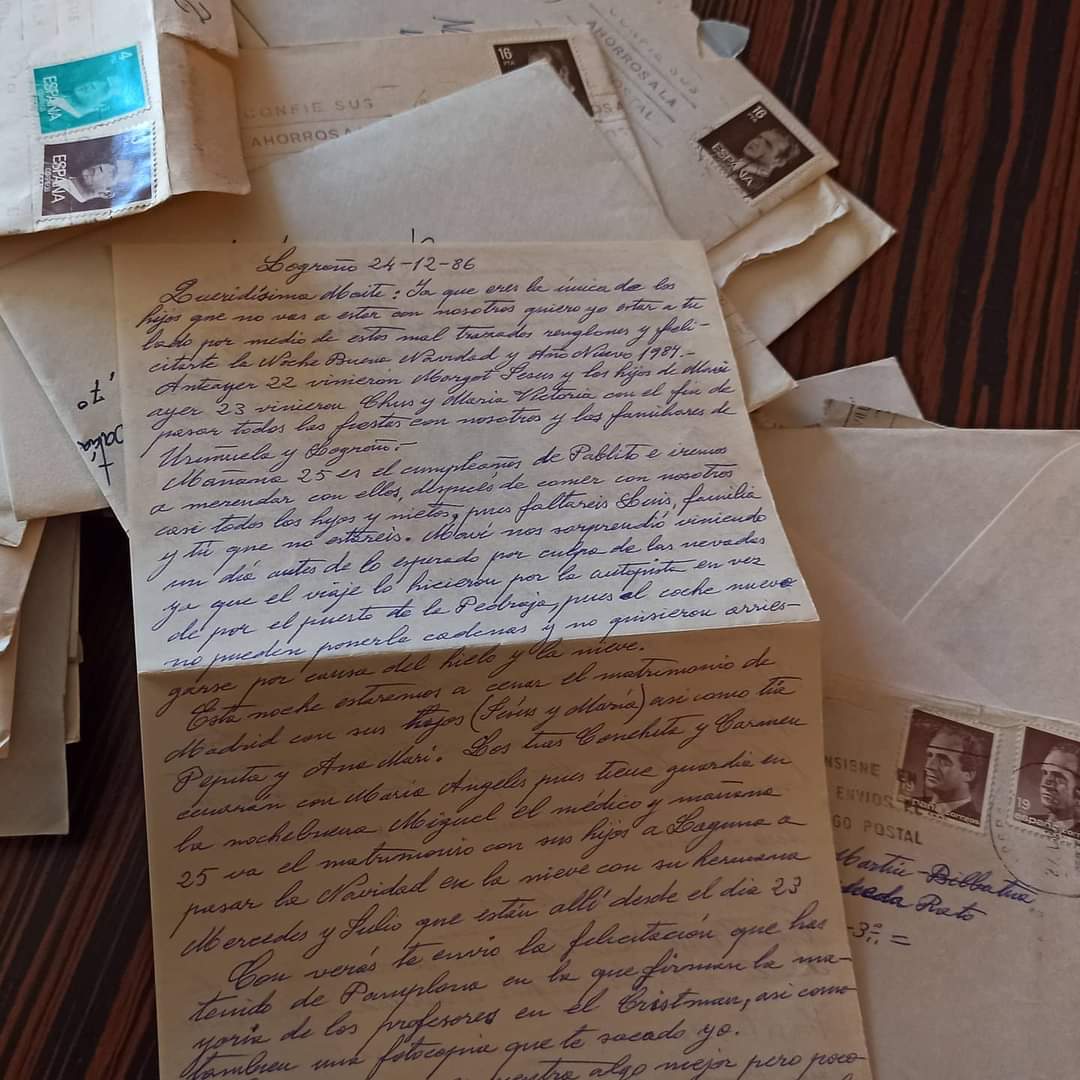 4
ESPAÑA
ESPAÑA
CONFIE SUS
AHORROS A
16
PTA
CONFIE SUS
AHORROS A LA
POSTAL
16
PTA
ESPAÑA
Logroño 24-12-86
Queridísima Maite: Ya que eres la única de los
hijos que no vas a estar con nosotros quiero yo estar a tu
lado por medio de estos mal trazados renglones y feli-
citarte la Noche Buena Navidad y Año Nuevo 1987.-
Anteayer 22 vinieron Margot Jesus y los hijos de
ayer 23 vinieron Chus y Maria Victoria con el fin de
pasar todos las fiestas con nosotros y los familiares de
Uruñuela y Logroño.-
Mañana 25 es el cumpleaños de Pablito e iremos
a merendar con ellos, después de comer con nosotros
casi todos los hijos y nietos, pues faltareis Luis, familia
y tú que no estareis. Maví nos sorprendió viniendo
un día antes de lo esperado por culpa de las nevadas
ya que el viaje lo hicieron por la autopista en vez
de por el puerto de la Pedraja, pues al coche nuevo
no pueden ponerle cadenas y no quisieron arries-
garse por causa del hielo y la nieve.
Esta noche estaremos a cenar el matrimonio de
Madrid con sus hijos (Jesús y María) asi como tía
Pepita y Ana Mari. Las tías Conchita y Carmen
cenarán con Maria Angeles pues tiene guardia en
la nochebuena Miguel el médico y mañana
25 va el matrimonio con sus hijos a Laguna a
pasar la Navidad en la nieve con su hermana
Mercedes y Julio que están allí desde el dia 23
Con verás te envio la felicitación que has
tenido de Pamplona en la que firman la ma-
yoria de los profesores en el Cristman, asi como
tambien una fotocopia que te sacado yo.
algo mejor pero poco
ENVIOS
GO POSTAL
19
España correos
19
Martin-Bilbatua
Prato
-3º =